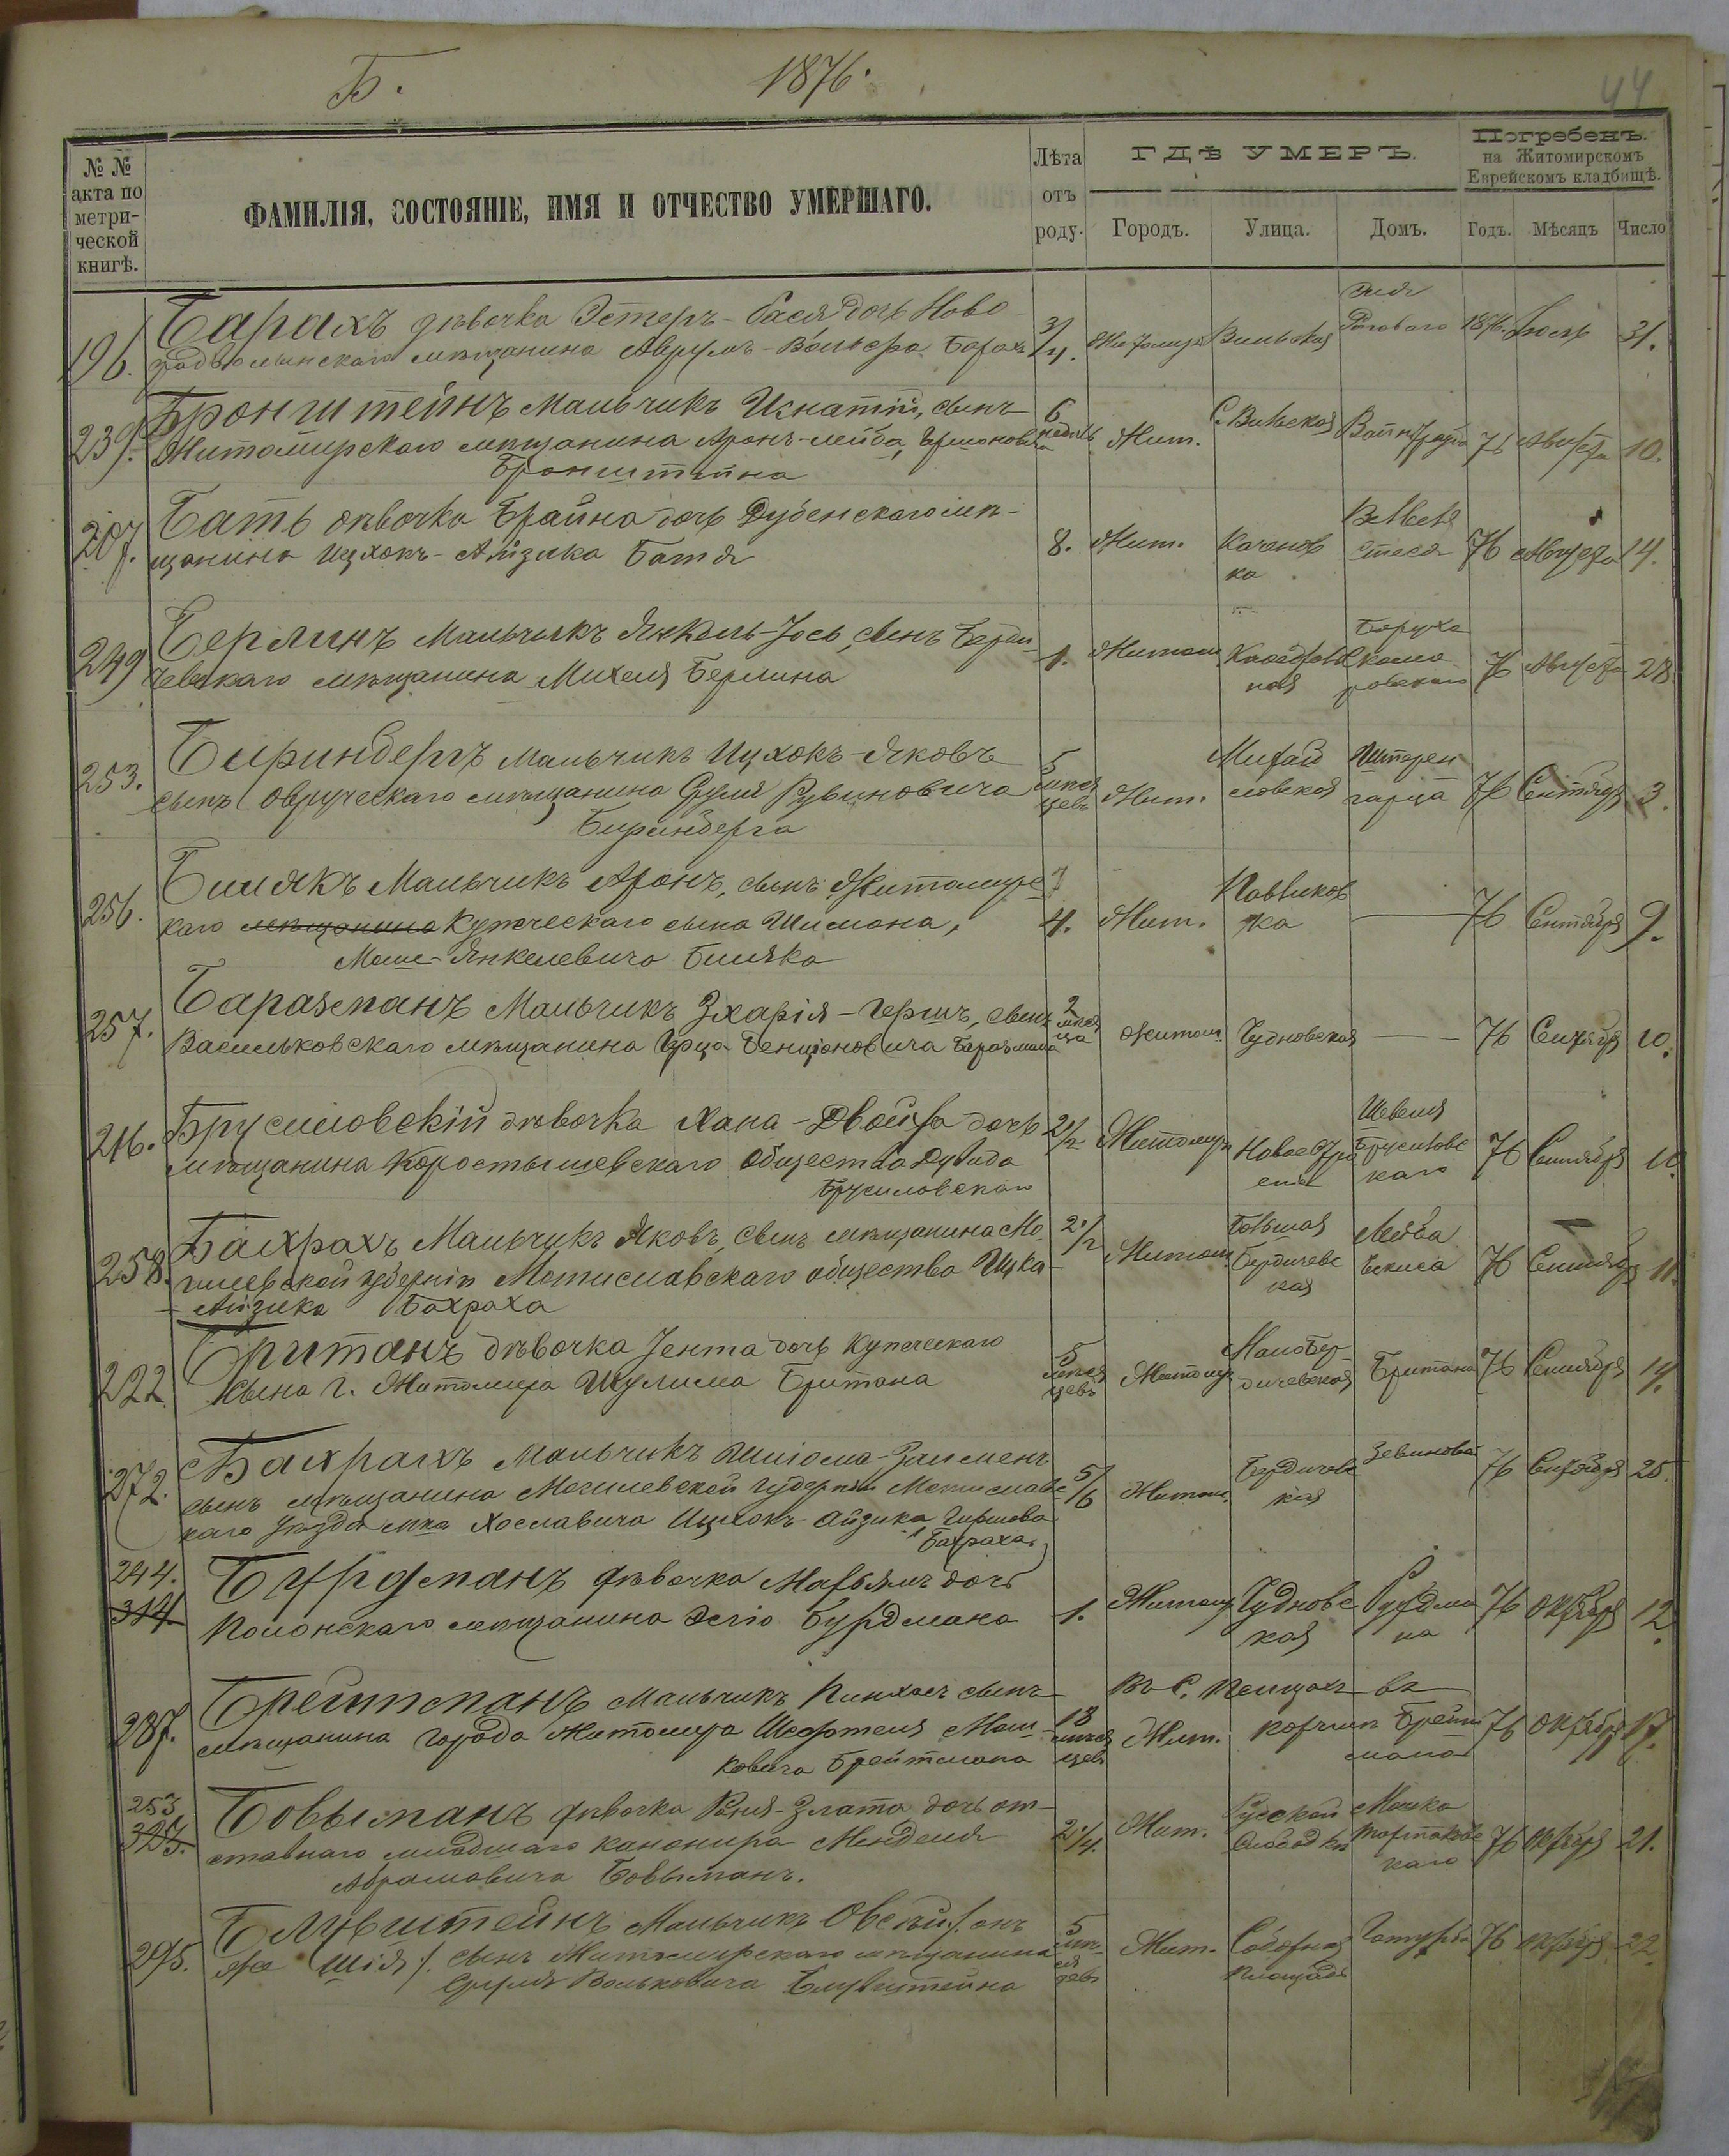 Б.
1876.
44
№ №
акта по
метри-
ческой
книгѣ.
ФАМИЛІЯ, СОСТОЯНІЕ, ИМЯ И ОТЧЕСТВО УМЕРШАГО.
Лѣта
отъ
роду.
ГДѢ УМЕРЪ.
Городъ. Улица. Домъ.
Погребенъ.
на Житомирскомъ
Еврейскомъ кладбищѣ.
Годъ. Мѣсяцъ Число
196. Барахъ дѣвочка Эстеръ-Бася дочь Ново
градволынскаго мѣщанина Аврумъ-Вольфа Барахъ 3/4. Житомиръ Вильская Роговаго 1876. 31.
239. Бронштейнъ Мальчикъ Игнатій, сынъ
Житомирскаго мѣщанина Аронъ-лейба,
Бронштейна
6 недѣль Жит. С. Вильская 76 Августа 10.
207. Бать дѣвочка Брайна дочь Дубенскаго мѣ-
щанина Ицхокъ-Айзика Батя
8. Жит. Каченов
ка
76 Августа 14.
249 Берлинъ Мальчикъ Янкель-Іось, сынъ Берди
чевскаго мѣщанина Михеля Берлина
1. Житом Кафедраль
ная
Баруха
76 Августа 28.
253. Биринбергъ Мальчикъ Ицхокъ-Яковъ
сынъ Овручскаго мѣщанина Сруля Рувиновича
Биринберга
5
мѣся
цевъ
Жит. Михай
ловская
Штерен
гарца
76 Сентября 3.
256. Билякъ Мальчикъ Аронъ, сынъ Житомирс
каго мѣщанина Купческаго сына Шимона,
Моше-Янкелевича Биляка
4. Жит. Павликов
ка
76 Сентября 9.
257. Баразманъ Мальчикъ Зхарія-Гершъ, сынъ
Васильковскаго мѣщанина Бенціоновича Баразмана
2
мѣся
ца
Житом. Чудновская 76 Сентября 10.
216. Брусиловскій дѣвочка Хана-Двойра дочь
мѣщанина Коростышевскаго Общества Дувида
Брусиловскаго
2 1/2 Житомир Новоестро
еніе
Шевеля
Брусиловс
каго
76 Сентября 10.
258. Бахрахъ Мальчикъ Яковъ, сынъ мѣщанина Мо
гилевской губерніи Мстиславскаго общества Ицка-
Айзика Бахраха
2 1/2 Житом. Большая
Бердичевс
кая
Лейба
76 Сентября 11.
222 Британъ дѣвочка Јента дочь Купеческаго
сына г. Житомира Шулима Британа
5
мѣся
цевъ
Житомир Малобер-
дичевская
Британа 76 Сентября 14.
272. Бахрахъ Мальчикъ Шліома-Залменъ
сынъ мѣщанина Могилевской губерніи Мстиславс
каго уѣзда мка Хославича Ицхокъ-Айзика Гиршова
Бахраха.
5/6 Житом. Бердичевс
кая
Зевиновой 76 Сентября 25.
244.
314 Бурдманъ дѣвочка Марьямъ дочь
Полонскаго мѣщанина Эліо Бурдмана
1. Житомир Чудновс
кая
76 Октября 12.
287. Брейтманъ Мальчикъ Пинхасъ сынъ
мѣщанина города Житомира Шефтеля Мош-
ковича Брейтмана
18
мѣся
цев
Въ С. Псыщахъ въ
Жит. корчмѣ Брейт
мана
76 Октября 17.
253
325. Бовыманъ дѣвочка Рейя-Злата дочь от-
ставнаго младшаго канонира Менделя
Абрамовича Бовыманъ.
2 1/4. Жит. Русской
Слободкѣ
Мошка
Тартаковс
каго
76 Октября 21.
295. Блувштейнъ Мальчикъ Овсѣй /. онъ
же Шія /. сынъ Житомирскаго мѣщанина
Сруля Вольковича Блувштейна
5
мѣ-
ся
цевъ
Жит. Соборная
Площадь
76 Октября 22.